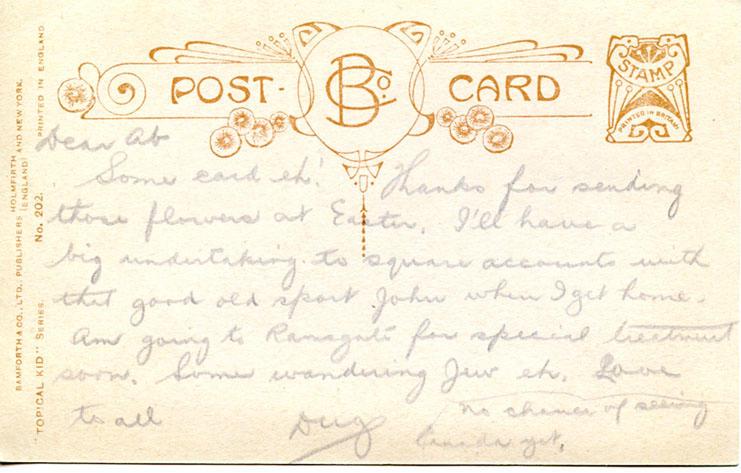 POST-
B Co.
CARD
STAMP
PRINTED IN BRITAIN
BAMFORTH & CO., LTD., PUBLISHERS
HOLMFIRTH
(ENGLAND) AND NEW YORK.
"TOPICAL KID" SERIES. No. 202. PRINTED IN ENGLAND
Dear Ab
Some card eh! Thanks for sending
those flowers at Easter. I'll have a
big undertaking to square accounts with
that good old sport John when I get home.
Am going to Ramsgate for special treatment
soon. Some wandering Jew eh. Love
to all Dug
no chance of seeing
Canada yet.